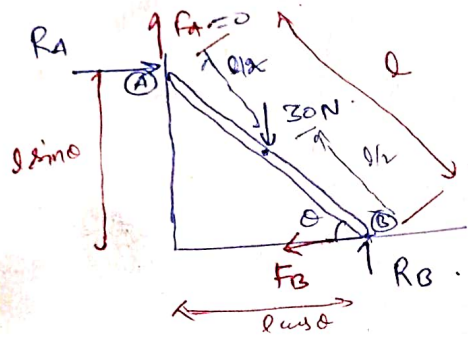 RA
FA=0
A
l/2
l
30N
l sinθ
l/2
θ
B
FB
RB.
l cosθ